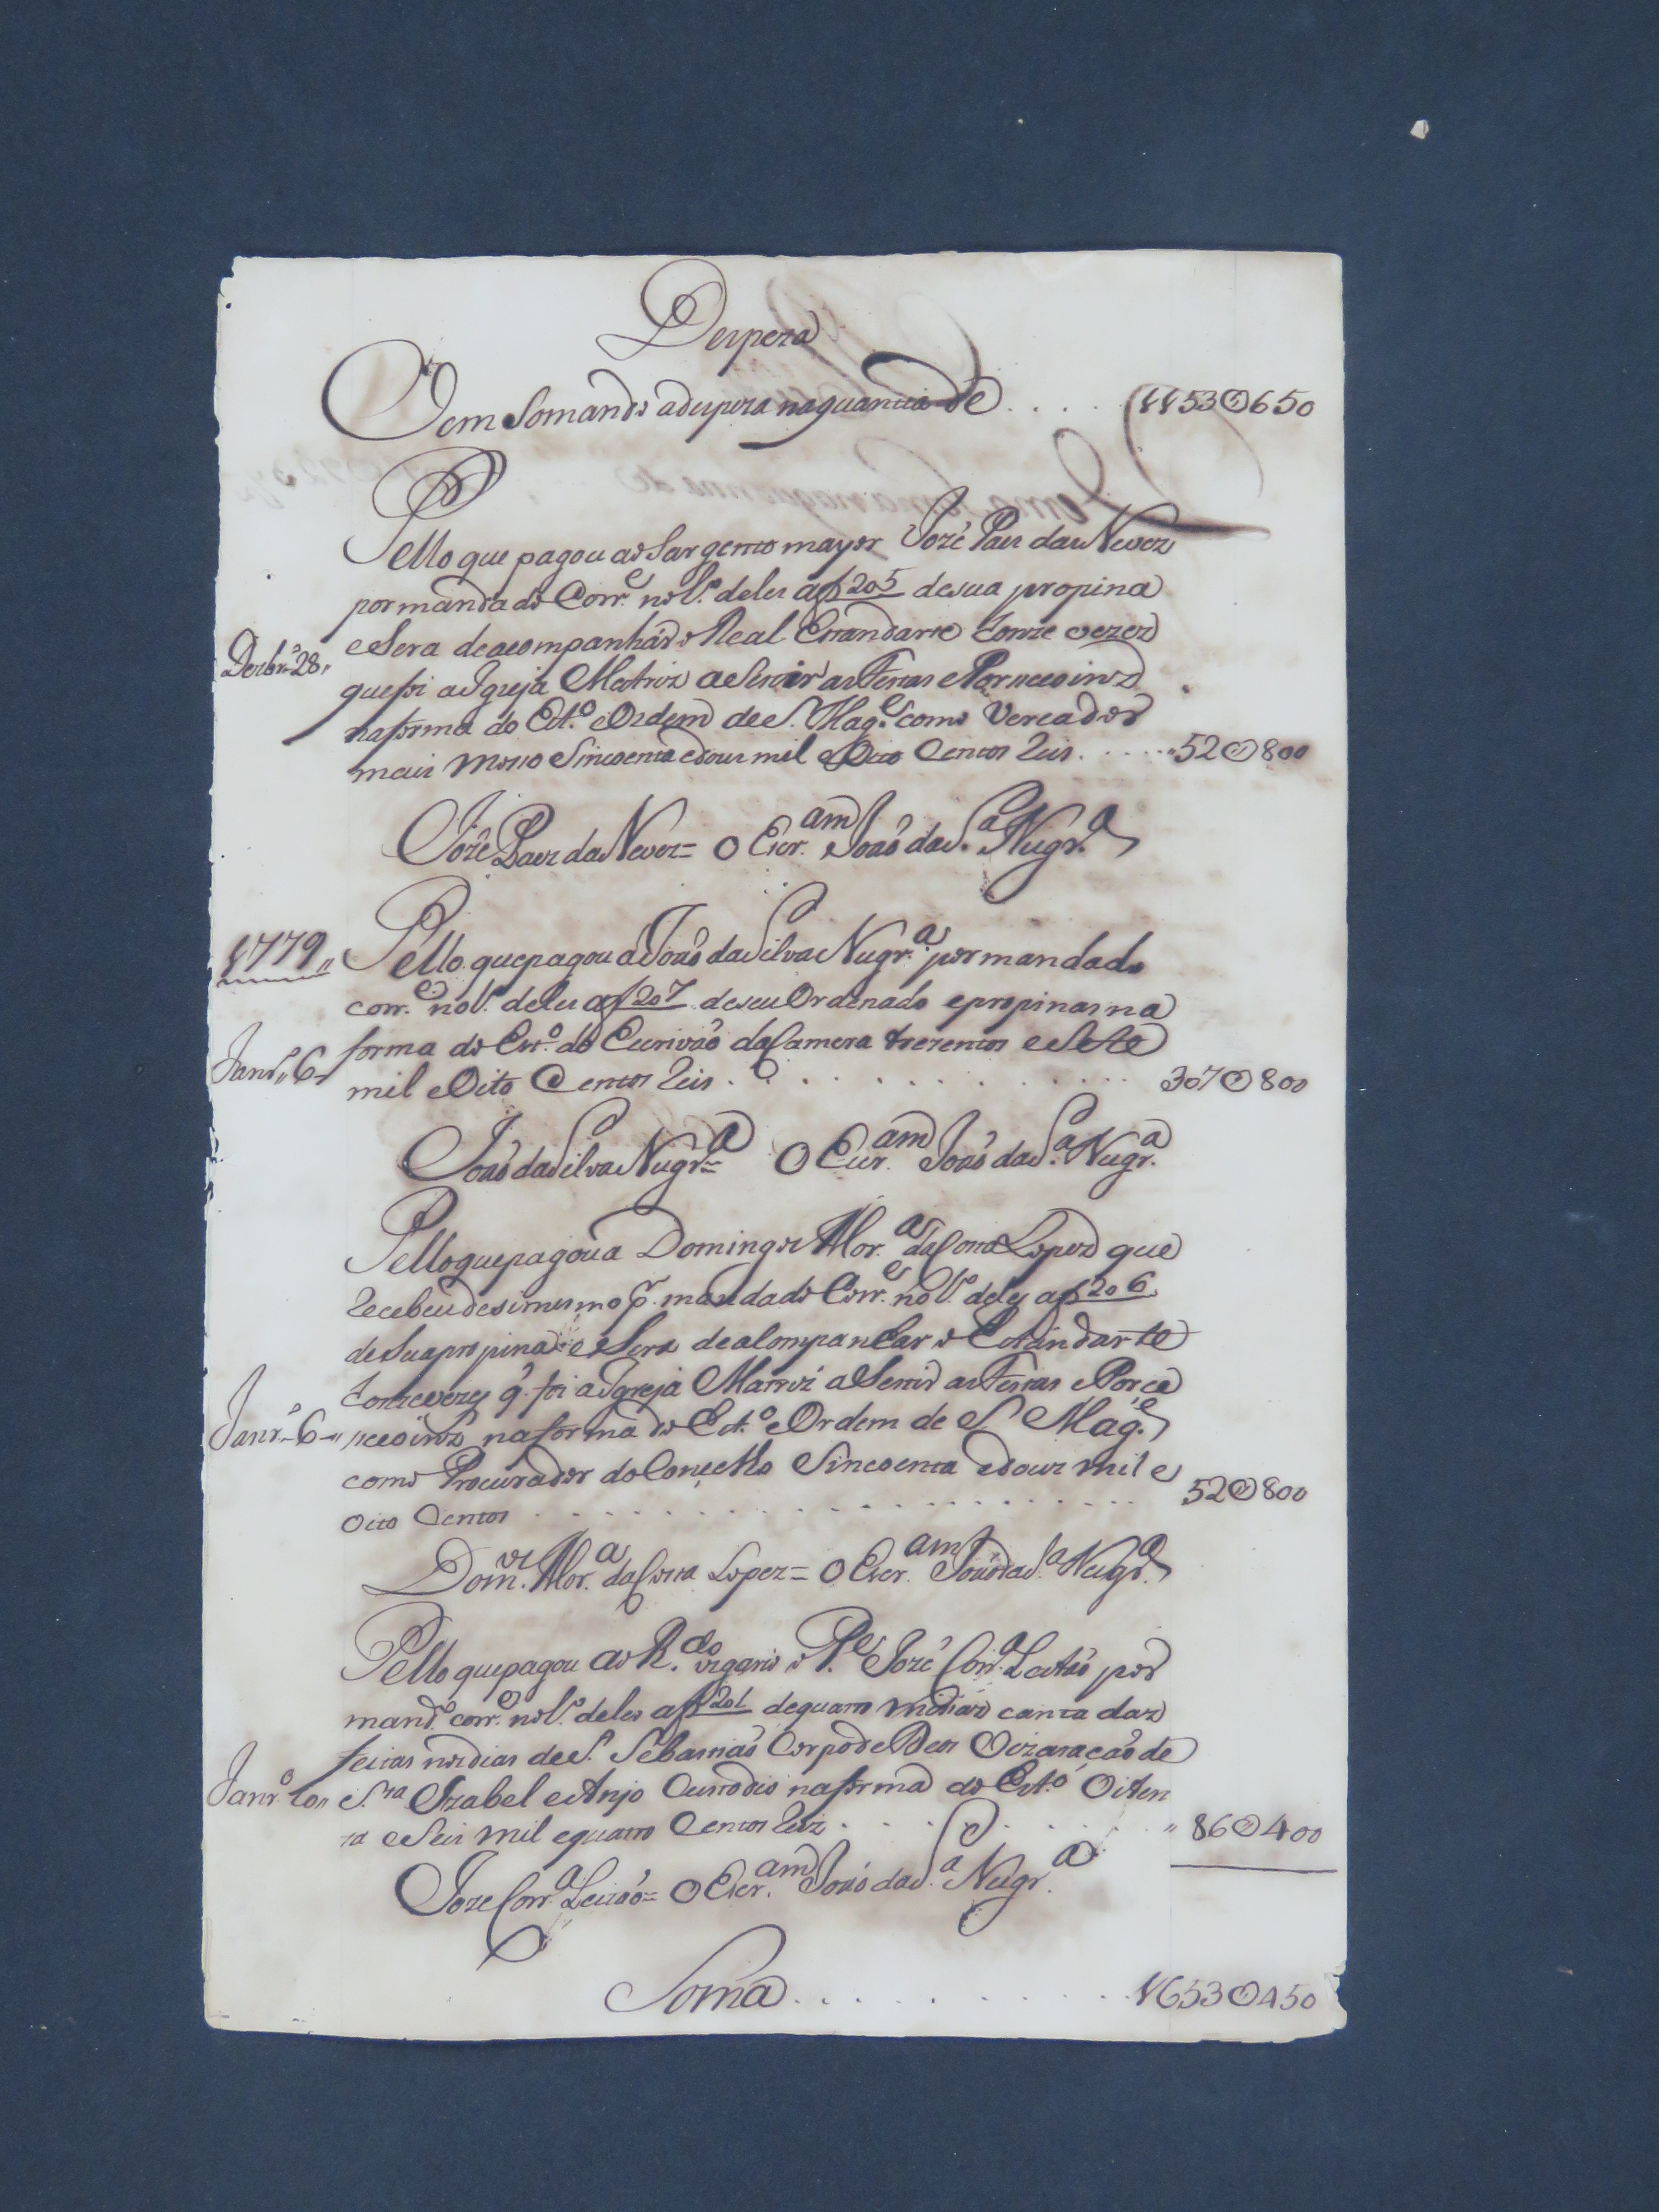 Despeza
Vem Somando adespeza naquantia de . . . . 1153@650
Pello que pagou ao Sargento mayor Jozé Paes das Neves
por mandado Corr.e no L.o deles a f 205 desua propina
Dezbr.o 28,, eSera deacompanhar o Real Estandarte Honze vezez
quefoi aIgreja Matriz aSestir as Festas ePorsiceoins
naforma do Est.o eOrdem de S. Mag.e como Vereador
mais moso Sincoenta edous mil eOito Centos Reis . . . . 52@800
Jozê Paez das Nevez = O Escr.am João da S.a Nugr.a
1779,, Pello quepagou a João daSilva Nugr.a por mandado
corr.e no L.o deles a f 207 deseu Ordenado epropinas na
Janr.o 6 forma do Est.o do Escrivão daCamera trezentos eSete
mil eOito Centos Reis . . . . . . . . . . 307@800
João daSilva Nugr.a = O Escr.am João da S.a Nugr.a
Pello quepagou a Domingos Mor.a daCosta Lopez que
Recebeu desimesmo p.r mandado Corr.e no L.o deles a f 206
desuapropina eSera deacompanhar o Estandarte
Honzevezes q. foi aIgreja Matriz aSestir as Festas ePorce
Janr.o 6 ,, naforma do Est.o eOrdem de S Mag.e
como Procurador doConselho Sincoenta edous mil e
Oito Centos . . . . . . . . . . 52@800
Dom.os Mor.a daCosta Lopez = O Escr.am João da S.a Nugr.a
Pello quepagou ao R.do vigario o P.e Jozé Corr.a Leitão por
mand.o corr.e no L.o deles a f 201 dequatro missas cantadas
feitas nos dias de S. Sebastião Corpo de Deos Vizitação de
Janr.o 10,, S.ta Izabel eAnjo Custodio naforma do Est.o Oiten
ta eSeis mil equatro Centos Reiz . . . . . . ,, 86@400
Joze Corr.a Leitão = O Escr.am João da S.a Nugr.a
Soma . . . . . . . . . 1653@450